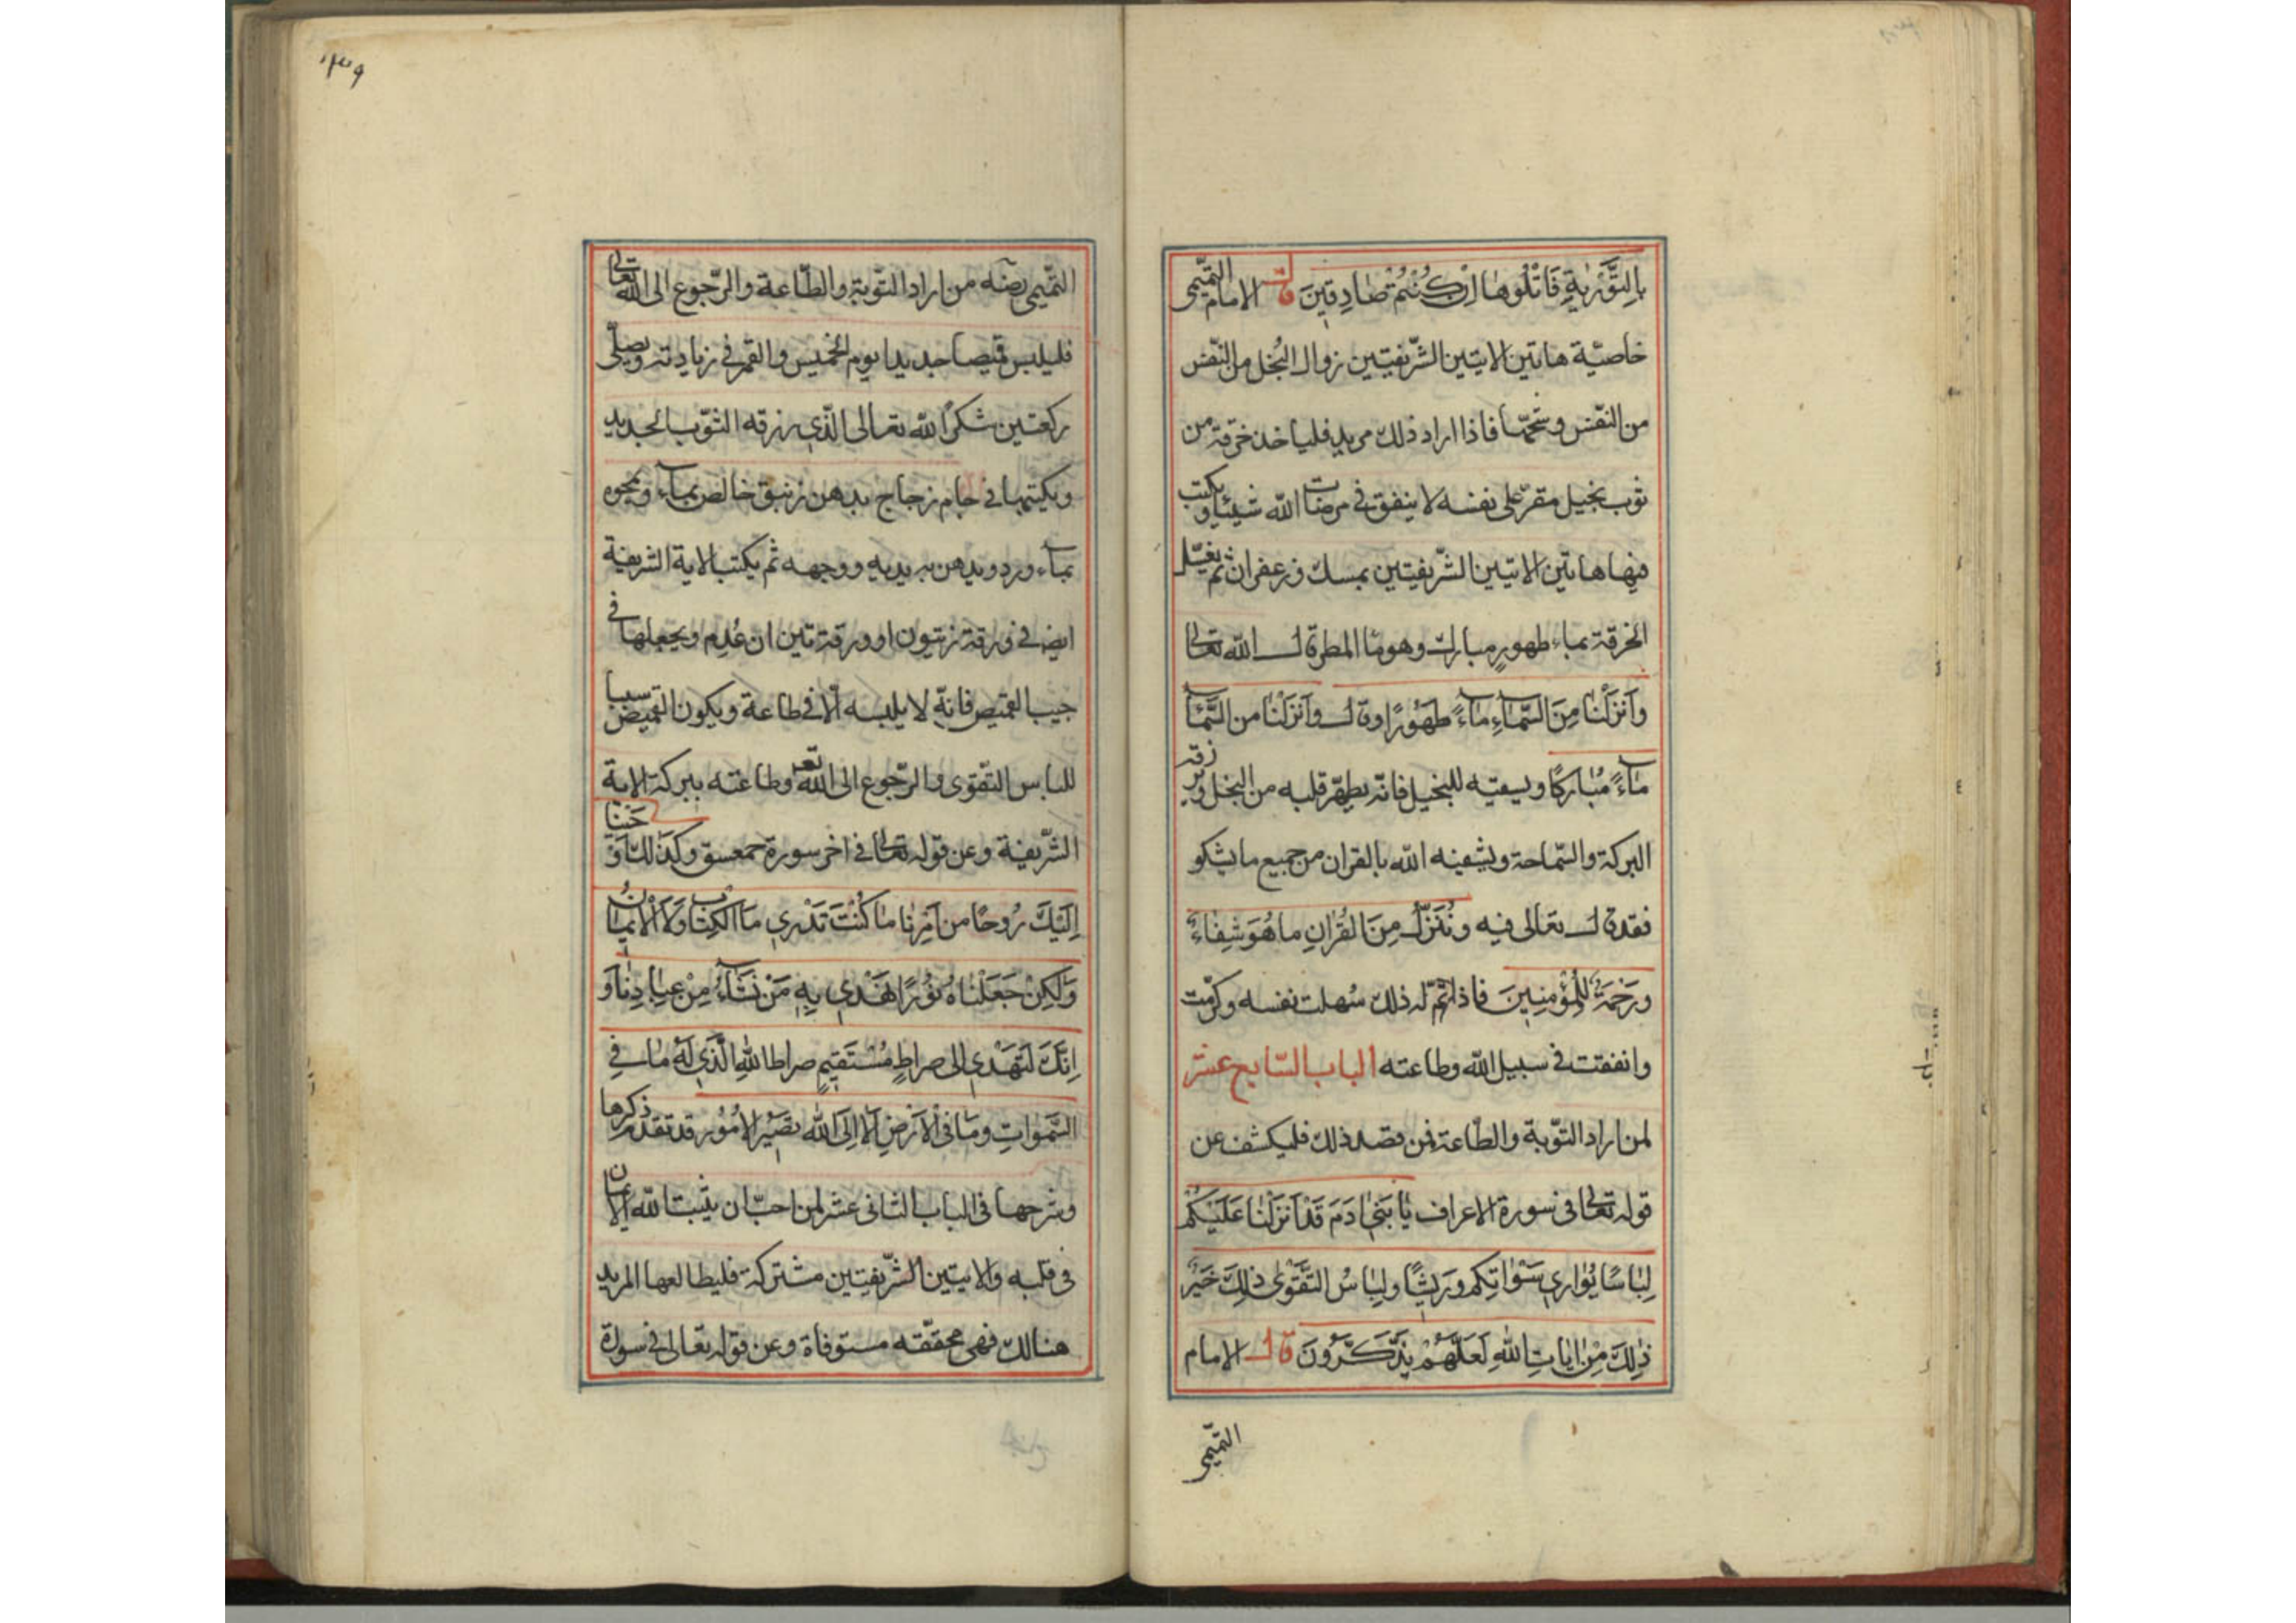 بِالتَّوْرٰيةِ فَاتْلُوهَا اِنْ كُنْتُمْ صَادِقِينَ قال الامام التميمى
خاصية هاتين الايتين الشريفيتين زوال البخل من النفس
من النفس وشحها فاذا اراد ذلك مريد فلياخذ خرقة من
ثوب بخيل مقتر على نفسه لا ينفق فى مرضات الله شيئا ويكتب
فيها هاتين الايتين الشريفيتين بمسك وزعفران ثم يغسل
الخرقة بماء طهور مبارك وهو ماء المطر قال الله تعالى
وَاَنْزَلْنَا مِنَ السَّمَاءِ مَاءً طَهُورًا وقال وَاَنْزَلْنَا من السَّمَاء
مَاءً مُبَارَكًا ويسقيه للبخيل فانه يطهر قلبه من البخل ويرزقه
البركة والسماحة ويشفيه الله بالقران من جميع ما يشكو
فقد قال تعالى فيه وَنُنَزِّلُ مِنَ الْقُرْاٰنِ مَا هُوَ شِفَاءٌ
وَرَحْمَةٌ لِلْمُؤْمِنِينَ فاذا تم له ذلك سهلت نفسه وكرمت
وانفقت فى سبيل الله وطاعته الباب السابع عشر
لمن اراد التوبة والطاعة فمن قصد ذلك فليكشف عن
قوله تعالى فى سورة الاعراف يَا بَنِى اٰدَمَ قَدْ اَنْزَلْنَا عَلَيْكُمْ
لِبَاسًا يُوَارِى سَوْاٰتِكُم وَرِيشًا وَلِبَاسُ التَّقْوٰى ذٰلِكَ خَيْرٌ
ذٰلِكَ مِنْ اٰيَاتِ اللّٰهِ لَعَلَّهُمْ يَذَّكَّرُونَ قال الامام
التميمى
١٣٩
التميمى رضى الله عنه من اراد التوبة والطاعة والرجوع الى الله تعالى
فليلبس قميصا جديدا يوم الخميس والقمر فى زيادته ويصلى
ركعتين شكرًا لله تعالى الذى رزقه الثوب الجديد
ويكتبها فى جام زجاج بدهن زنبق خالص بماء ويمحوه
بماء ورد ويدهن به يديه ووجهه ثم يكتب الاية الشريفة
ايضا فى ورقة زيتون او ورقة تين ان عُدِم ويجعلها فى
جيب القميص فانه لا يلبسه الا فى طاعة ويكون القميص سببا
للباس التقوى والرجوع الى الله تعـ وطاعته ببركة الاية
الشريفة وعن قوله تعالى فى اخر سورة حمعسق وَكَذٰلِكَ اَوْحَيْنَا
اِلَيْكَ رُوحًا من اَمْرِنَا مَا كُنْتَ تَدْرِى مَا الْكِتَابُ وَلَا الْاِيمَانُ
وَلٰكِنْ جَعَلْنَاهُ نُورًا نَهْدِى بِهِ مَنْ نَشَاءُ مِنْ عِبَادِنَا وَ
اِنَّكَ لَتَهْدِى اِلى صِرَاطٍ مُسْتَقِيمٍ صراط اللهِ الَّذِى لَهُ مَا فِى
السَّمٰوَاتِ وَمَا فِى الْاَرْضِ اَلَا اِلَى اللّٰهِ تَصِيرُ الْاُمُورُ قد تقدم ذكرها
وشرحها فى الباب الثانى عشر لمن احب ان يثبت الله الايمان
فى قلبه والايتين الشريفيتين مشتركة فليطالعها المريد
هنالك فهى محققه مستوفاة وعن قوله تعالى فى سورة